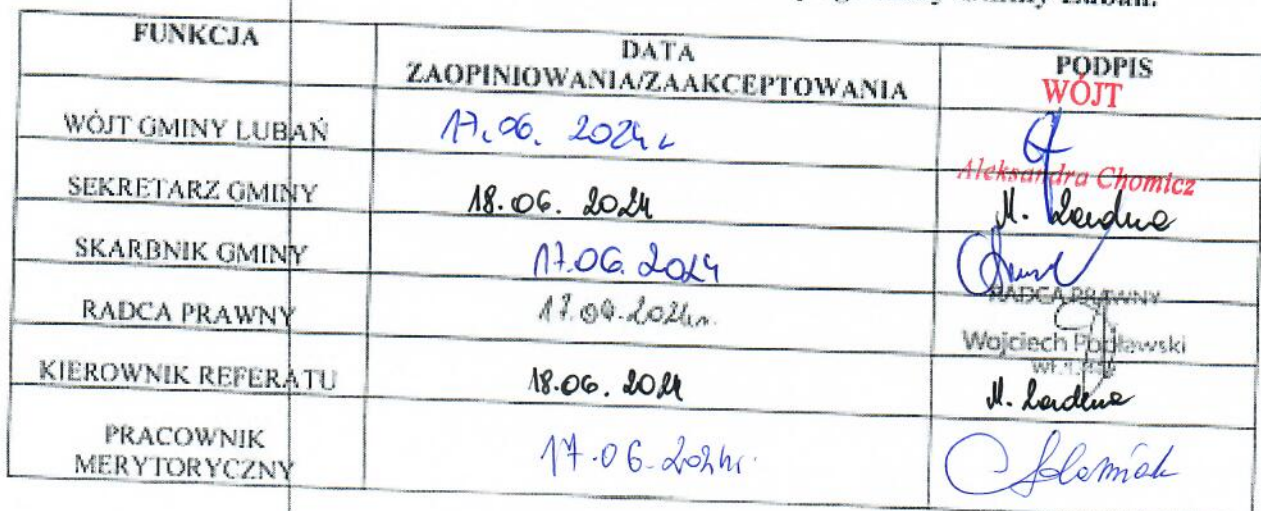 Gminy Lubań.
FUNKCJA
DATA
ZAOPINIOWANIA/ZAAKCEPTOWANIA
PODPIS
WÓJT
WÓJT GMINY LUBAŃ
17.06. 2024 r
Aleksandra Chomicz
SEKRETARZ GMINY
18.06. 2024
SKARBNIK GMINY
17.06.2024
RADCA PRAWNY
RADCA PRAWNY
Wojciech Podławski
KIEROWNIK REFERATU
18.06.2024
PRACOWNIK
MERYTORYCZNY
17.06.2024r.